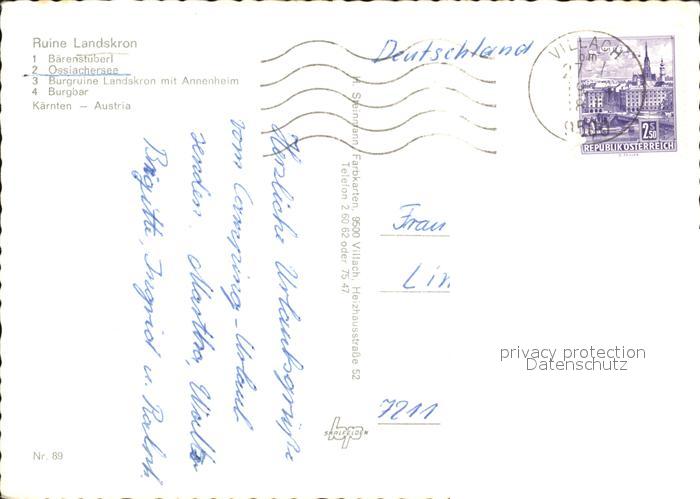 Ruine Landskron
1 Bärenstüberl
2 Ossiachersee
3 Burgruine Landskron mit Annenheim
4 Burgbar
Kärnten — Austria
Herzliche Urlaubsgrüße
vom Camping-Urlaub
senden. Martha, Walter
Brigitte, Ingrid u. Ralph
Nr. 89
H. Steinmann, Farbkarten, 9500 Villach, Heizhausstraße 52
Telefon 2 60 62 oder 75 47
SAALFELDEN
Deutschland
VILLACH
9500
2.50
REPUBLIK ÖSTERREICH
Frau
Lin
7211
privacy protection
Datenschutz